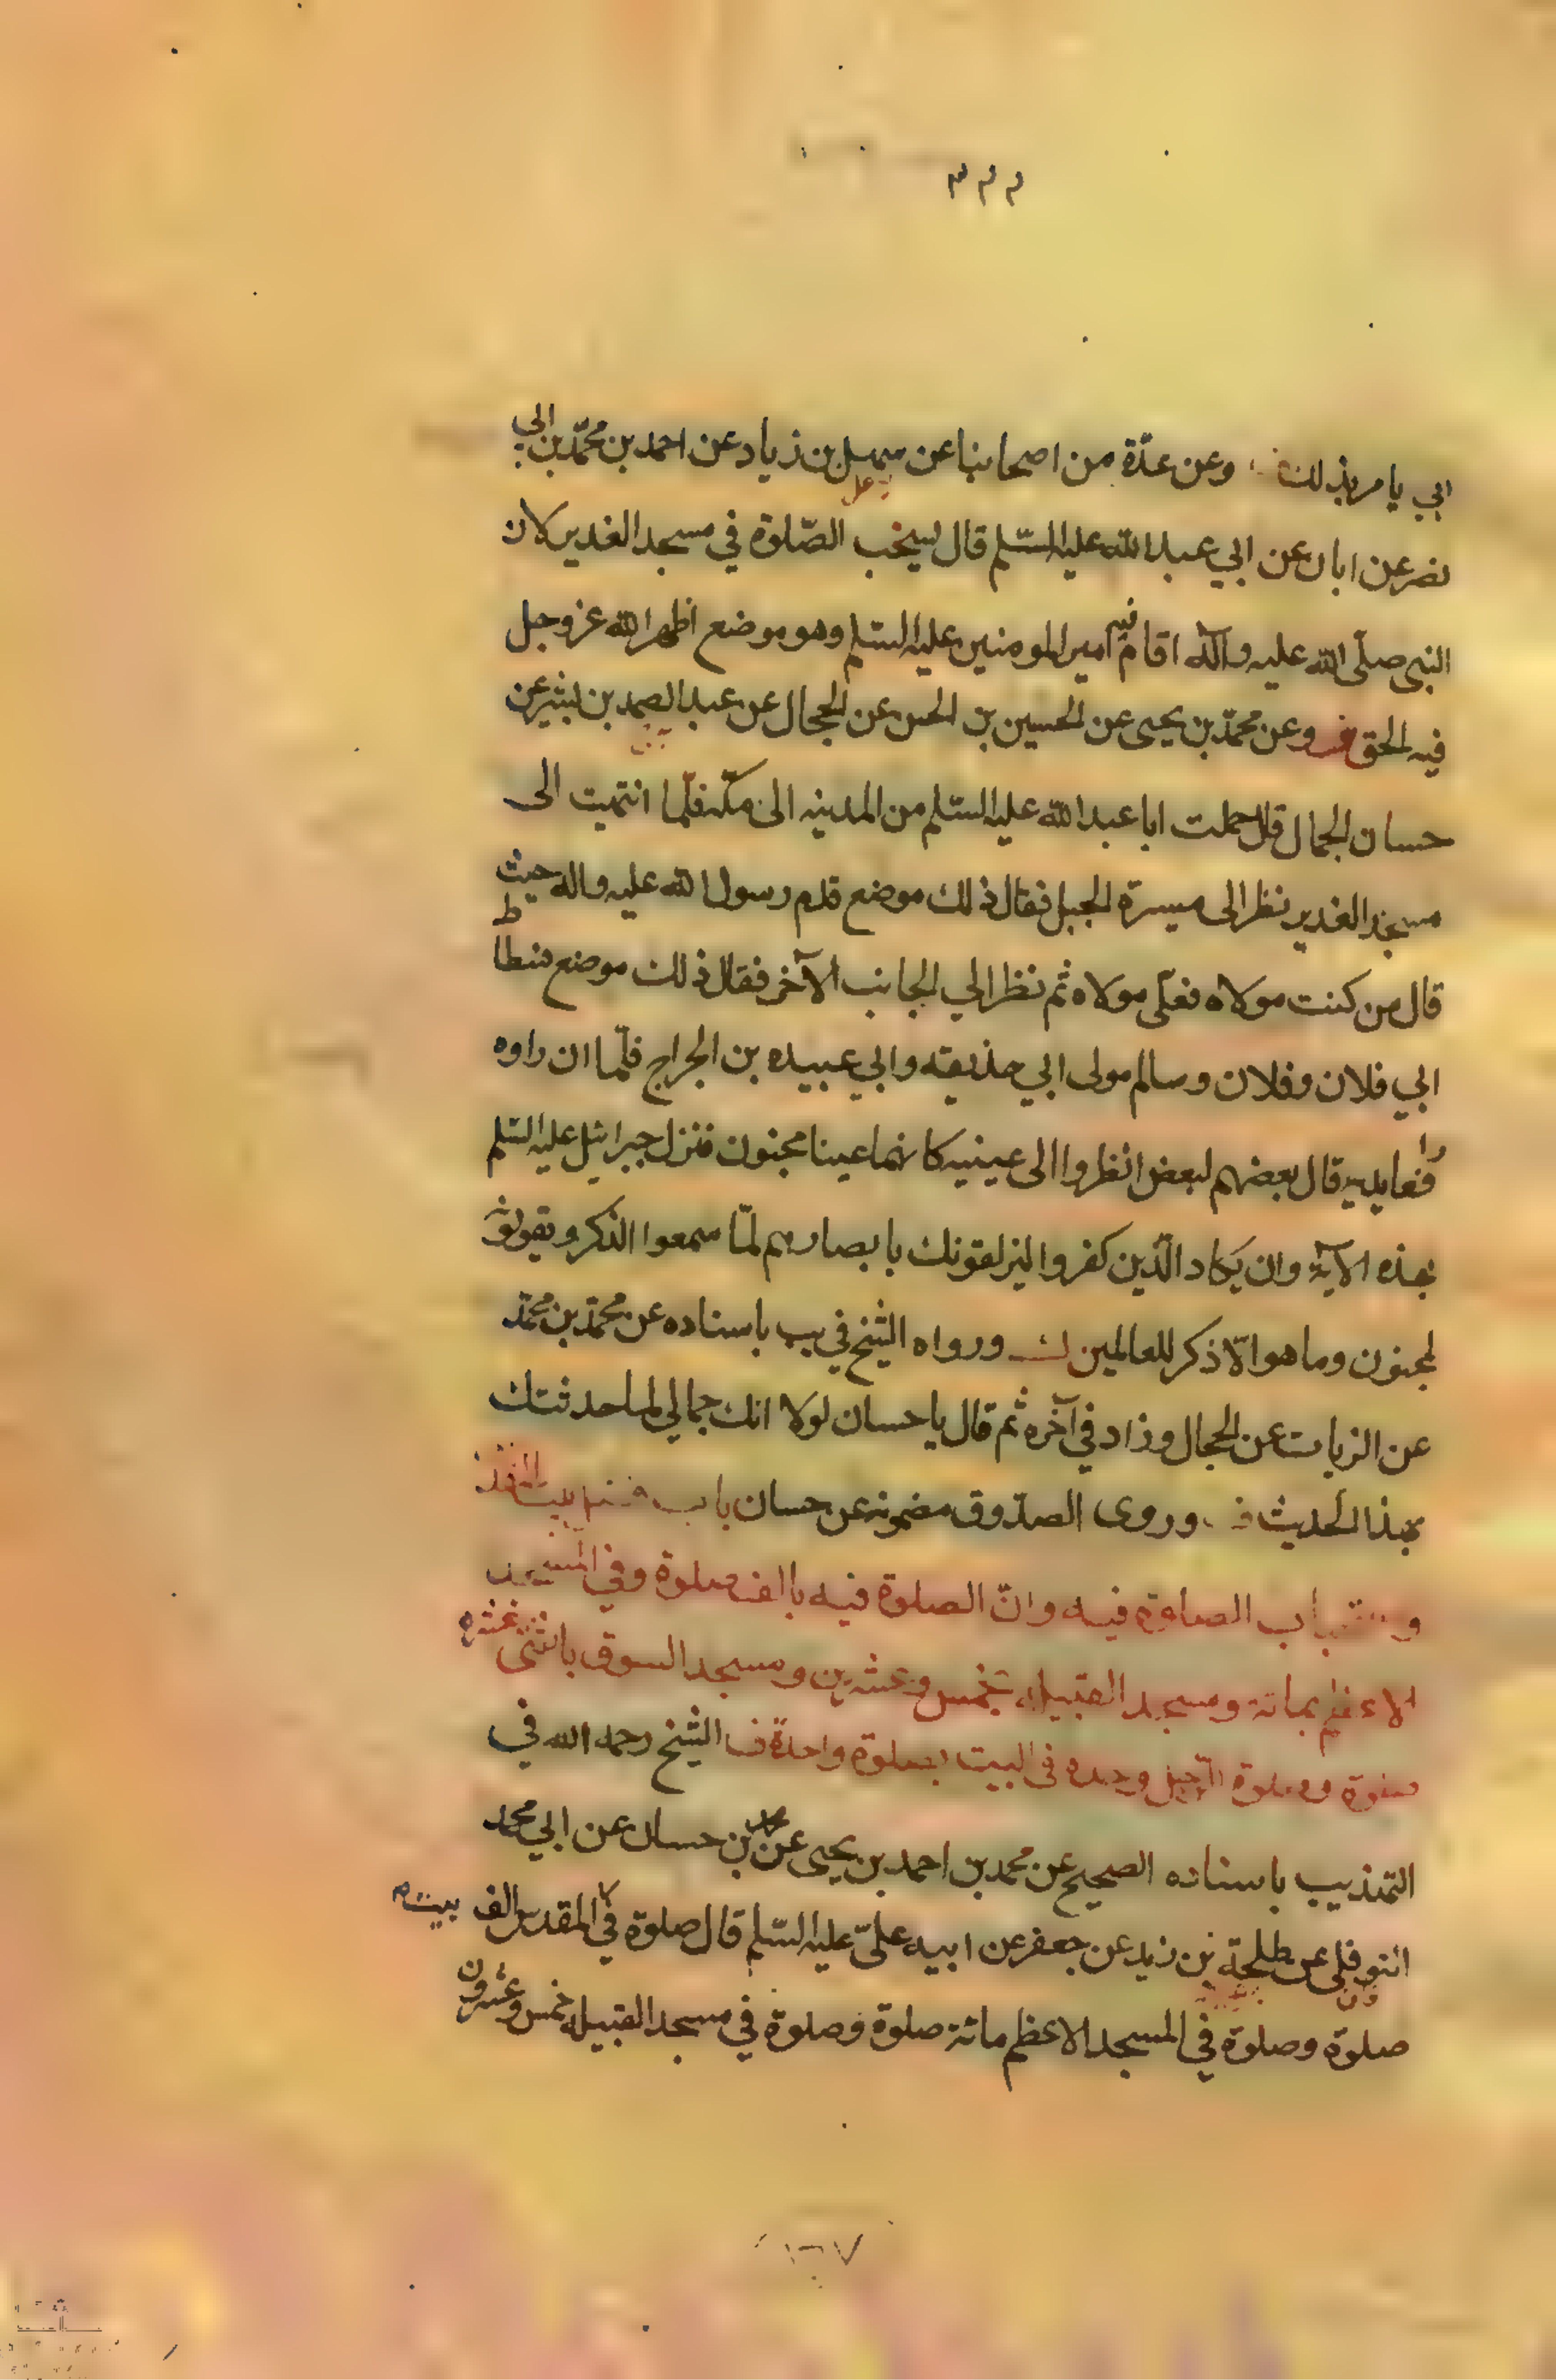 ٣٢٢
ابي يا مر بذلك وعن عدّة من اصحابنا عن سهل بن زياد عن احمد بن محمّد بن ابي
نصر عن ابان عن ابي عبد الله عليه السّلم قال يستحب الصّلوة في مسجد الغدير لان
النبي صلّى الله عليه وآله اقام فيه امير المومنين عليه السّلم وهو موضع اظهر الله عز وجل
فيه الحق وعن محمّد بن يحيى عن الحسين بن الحسن عن الحجال عن عبد الصمد بن بشير عن
حسان الجمال قال حملت ابا عبد الله عليه السّلم من المدينه الى مكّه فلّما انتهيت الى
مسجد الغدير نظر الى ميسرة الجبل فقال ذلك موضع قدم رسول الله عليه واله حيث
قال من كنت مولاه فعلّى مولاه ثم نظر الي الجانب الآخر فقال ذلك موضع فسطاط
ابي فلان وفلان وسالم مولى ابي حذيفه وابي عبيده بن الجراح فلّما ان راوه
رافعا يديه قال بعضهم لبعض انظروا الى عينيه كانهما عينا مجنون فنزل جبرائيل عليه السّلم
بهذه الآية وان يكاد الّذين كفروا ليزلقونك بابصارهم لمّا سمعوا الذكر ويقولون
لمجنون وما هو الّا ذكر للعالمين ورواه الشيخ في يب باسناده عن محمّد بن محمّد
عن الزيات عن الحجال وزاد في آخره ثم قال يا حسان لولا انك جمالي لما حدثتك
بهذا الحديث وروى الصدّوق مضمونه عن حسان باب
الصلوة فيه وانّ الصلوة فيه بالف صلوة وفي المسجد
الاعظم بمائة ومسجد القبيله بخمس وعشرين ومسجد السوق باثنى عشره
صلوة وصلوة الرّجل وحده في البيت بصلوة واحدة الشيخ رحمه الله في
التهذيب باسناده الصحيح عن محمد بن احمد بن يحيى عن محمد بن حسان عن ابي محمد
النوفلي عن طلحة بن زيد عن جعفر عن ابيه علىّ عليه السّلم قال صلوة في بيت المقدس الف
صلوة وصلوة في المسجد الاعظم مائة صلوة وصلوة في مسجد القبيله خمس وعشرون